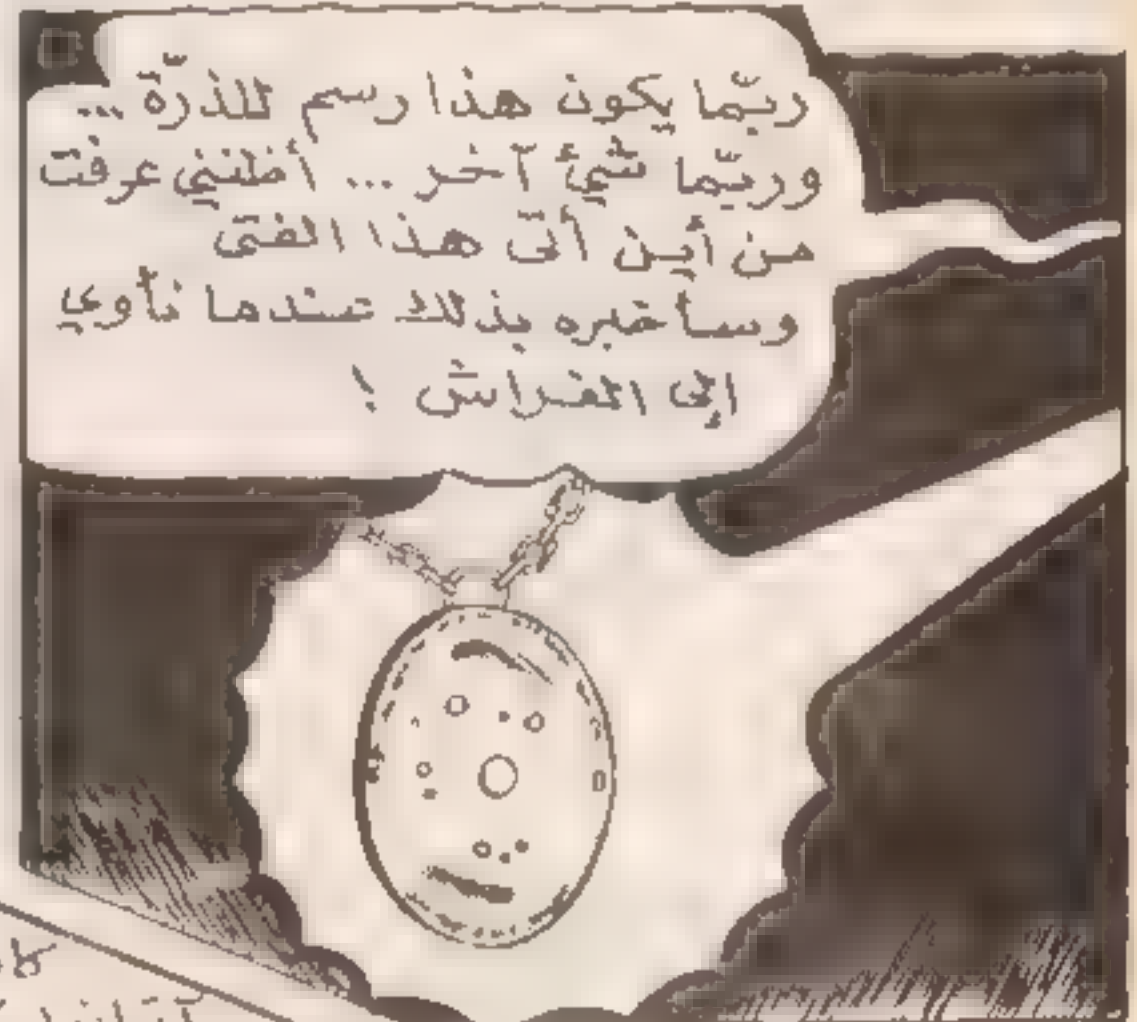 ربّما يكون هذا رسم للذرّة ...
وربّما شيئ آخر ... أظنني عرفت
من أين أتى هذا الفتى
وسأخبره بذلك عندما نأوي
إلى الفراش !